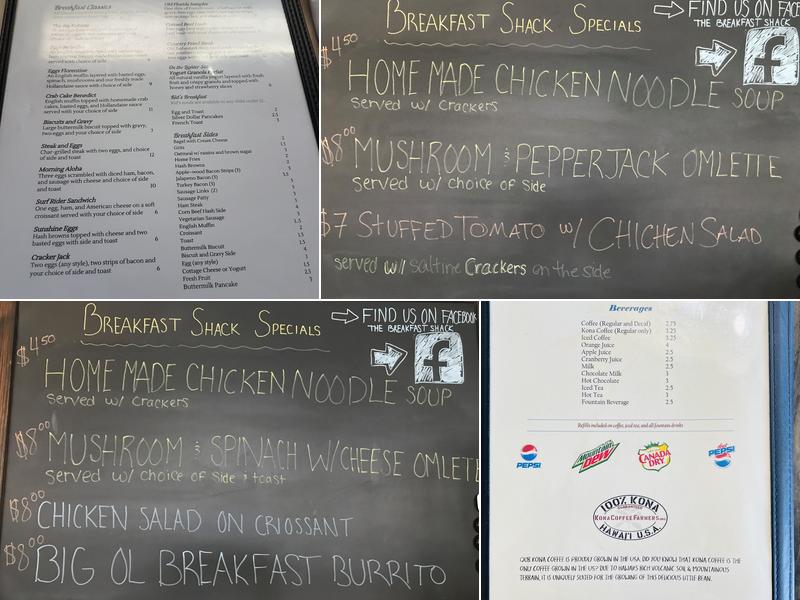 Breakfast Classics
Eggs Florentine
An English muffin layered with basted eggs,
spinach, mushrooms and our freshly made
Hollandaise sauce with choice of side 9
Crab Cake Benedict
English muffin topped with homemade crab
cakes, basted eggs, and Hollandaise sauce
served with your choice of side 11
Biscuits and Gravy
Large buttermilk biscuit topped with gravy,
two eggs and your choice of side 7
Steak and Eggs
Char-grilled steak with two eggs, and choice
of side and toast 12
Morning Aloha
Three eggs scrambled with diced ham, bacon,
and sausage with cheese and choice of side
and toast 10
Surf Rider Sandwich
One egg, ham, and American cheese on a soft
croissant served with your choice of side 6
Sunshine Eggs
Hash browns topped with cheese and two
basted eggs with side and toast 6
Cracker Jack
Two eggs (any style), two strips of bacon and
your choice of side and toast 6
Old Florida Sampler
Country Fried Steak
On the Lighter Side
Yogurt Granola Parfait
All natural vanilla yogurt layered with fresh
fruit and crispy granola and topped with
honey and strawberry slices 6
Kid's Breakfast
Egg and Toast 2
Silver Dollar Pancakes 2.5
French Toast 3
Breakfast Sides
Bagel with Cream Cheese
Grits
Oatmeal w/ raisins and brown sugar
Home Fries
Hash Browns
Apple-wood Bacon Strips (3)
Jalapeno Bacon (3)
Turkey Bacon (3)
Sausage Links (2)
Sausage Patty
Ham Steak
Corn Beef Hash Side
Vegetarian Sausage
English Muffin
Croissant
Toast
Buttermilk Biscuit
Biscuit and Gravy Side
Egg (any style)
Cottage Cheese or Yogurt
Fresh Fruit
Buttermilk Pancake
BREAKFAST SHACK SPECIALS
FIND US ON FACE
THE BREAKFAST SHACK
f
$4.50
HOME MADE CHICKEN NOODLE SOUP
served w/ Crackers
$8.00
MUSHROOM & PEPPERJACK OMLETTE
served w/ choice of side
$7 STUFFED TOMATO w/ CHICHEN SALAD
served w/ saltine Crackers on the side
BREAKFAST SHACK SPECIALS
FIND US ON FACEBOOK
THE BREAKFAST SHACK
f
$4.50
HOME MADE CHICKEN NOODLE SOUP
served w/ Crackers
$8.00
MUSHROOM & SPINACH W/CHEESE OMLETT
served w/ choice of side & toast
$8.00 CHICKEN SALAD ON CRIOSSANT
$8.00 BIG OL BREAKFAST BURRITO
Beverages
Coffee (Regular and Decaf) 2.75
Kona Coffee (Regular only) 3.25
Iced Coffee 3.25
Orange Juice 4
Apple Juice 2.5
Cranberry Juice 2.5
Milk 2.5
Chocolate Milk 3
Hot Chocolate 3
Iced Tea 2.5
Hot Tea 3
Fountain Beverage 2.5
Refills included on coffee, iced tea, and all fountain drinks
PEPSI
MOUNTAIN DEW
CANADA DRY
diet PEPSI
100% KONA
GUARANTEED
KONACOFFEEFARMERS.ORG
HAWAI'I U.S.A.
OUR KONA COFFEE IS PROUDLY GROWN IN THE USA. DID YOU KNOW THAT KONA COFFEE IS THE
ONLY COFFEE GROWN IN THE US? DUE TO HAWAII'S RICH VOLCANIC SOIL & MOUNTAINOUS
TERRAIN, IT IS UNIQUELY SUITED FOR THE GROWING OF THIS DELICIOUS LITTLE BEAN.